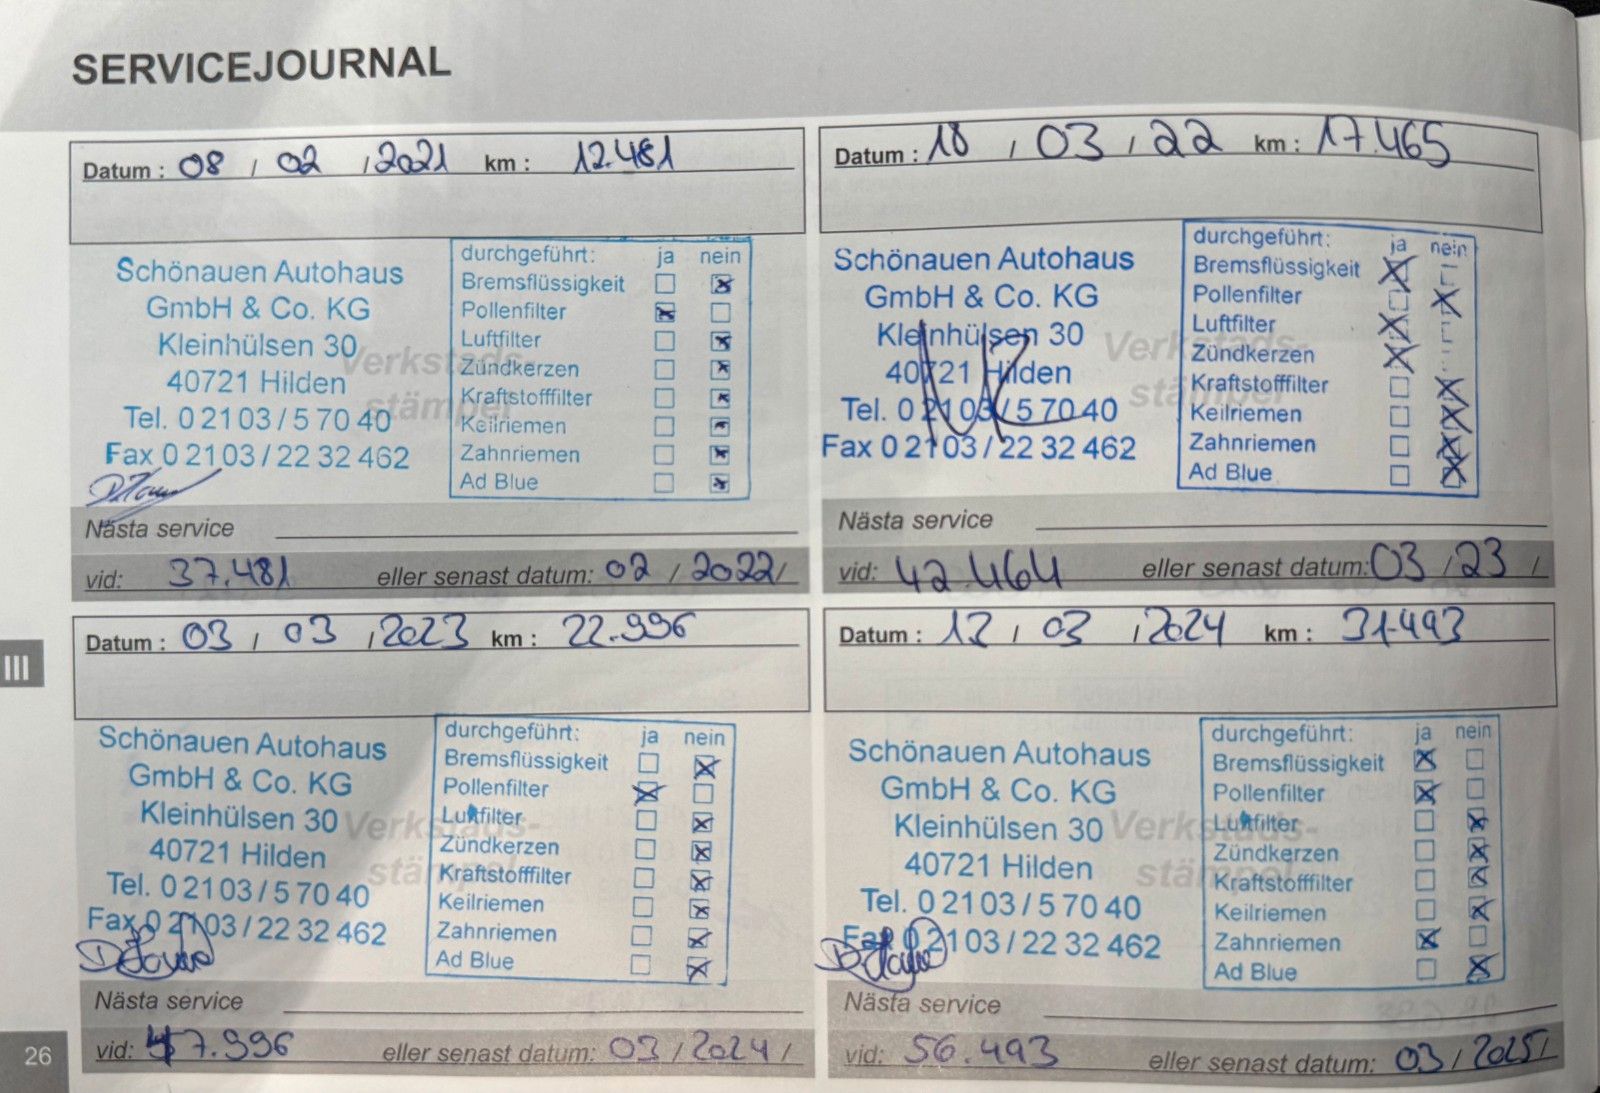 SERVICEJOURNAL
Datum : 08 / 02 / 2021 km : 12.481
Schönauen Autohaus
GmbH & Co. KG
Kleinhülsen 30
40721 Hilden
Tel. 0 21 03 / 5 70 40
Fax 0 21 03 / 22 32 462
Verkstads-
stämpel
durchgeführt: ja nein
Bremsflüssigkeit
Pollenfilter
Luftfilter
Zündkerzen
Kraftstofffilter
Keilriemen
Zahnriemen
Ad Blue
Nästa service
vid: 37.481 eller senast datum: 02 / 2022 /
Datum : 18 / 03 / 22 km : 17.465
Schönauen Autohaus
GmbH & Co. KG
Kleinhülsen 30
40721 Hilden
Tel. 0 21 03 / 5 70 40
Fax 0 21 03 / 22 32 462
Verkstads-
stämpel
durchgeführt: ja nein
Bremsflüssigkeit
Pollenfilter
Luftfilter
Zündkerzen
Kraftstofffilter
Keilriemen
Zahnriemen
Ad Blue
Nästa service
vid: 42.464 eller senast datum: 03 / 23 /
Datum : 03 / 03 / 2023 km : 22.996
Schönauen Autohaus
GmbH & Co. KG
Kleinhülsen 30
40721 Hilden
Tel. 0 21 03 / 5 70 40
Fax 0 21 03 / 22 32 462
Verkstads-
stämpel
durchgeführt: ja nein
Bremsflüssigkeit
Pollenfilter
Luftfilter
Zündkerzen
Kraftstofffilter
Keilriemen
Zahnriemen
Ad Blue
Nästa service
vid: 47.996 eller senast datum: 03 / 2024 /
Datum : 12 / 03 / 2024 km : 31.493
Schönauen Autohaus
GmbH & Co. KG
Kleinhülsen 30
40721 Hilden
Tel. 0 21 03 / 5 70 40
Fax 0 21 03 / 22 32 462
Verkstads-
stämpel
durchgeführt: ja nein
Bremsflüssigkeit
Pollenfilter
Luftfilter
Zündkerzen
Kraftstofffilter
Keilriemen
Zahnriemen
Ad Blue
Nästa service
vid: 56.493 eller senast datum: 03 / 2025 /
III
26